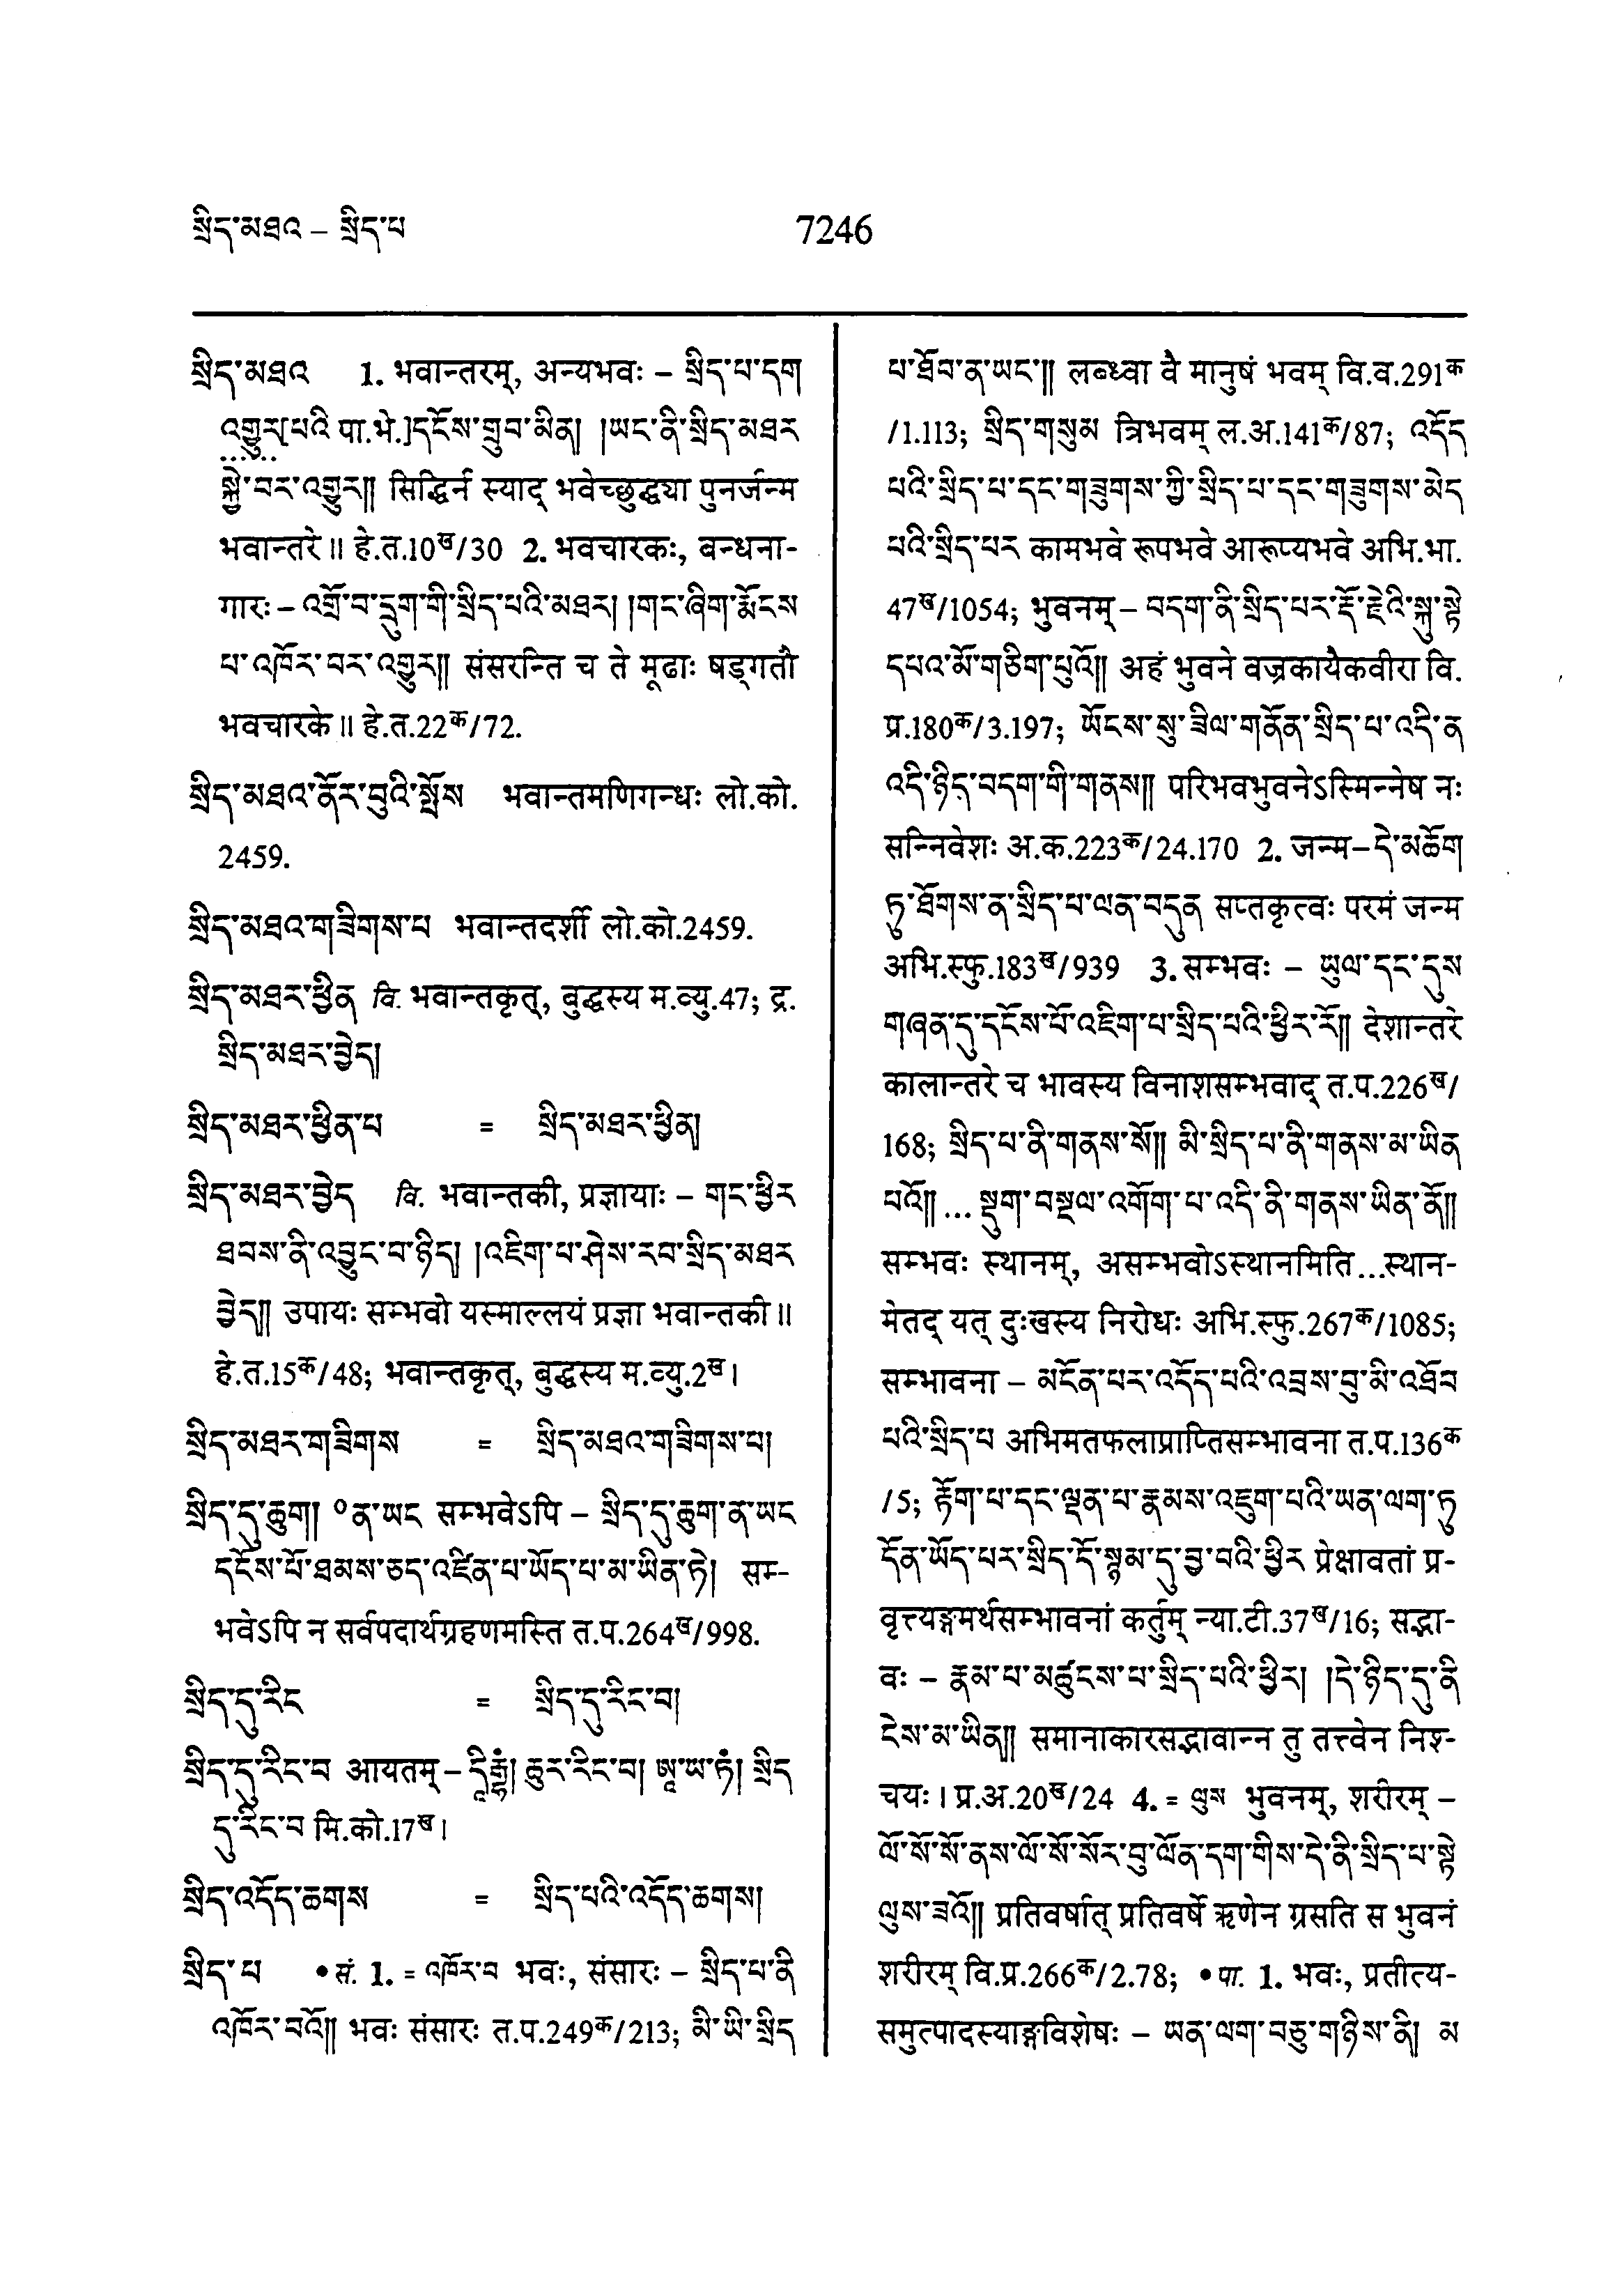 སྲིད་མཐའ – སྲིད་པ
7246
སྲིད་མཐའ 1. भवान्तरम्, अन्यभवः – སྲིད་པ་དག
འགྱུར[པའི पा.भे.]དངོས་གྲུབ་མིན། །ཡང་ནི་སྲིད་མཐར
སྐྱེ་བར་འགྱུར།། सिद्धिर्न स्याद् भवेच्छुद्ध्या पुनर्जन्म
भवान्तरे ॥ हे.त.10ख/30 2. भवचारकः, बन्धना-
गारः – འགྲོ་བ་དྲུག་གི་སྲིད་པའི་མཐར། །གང་ཞིག་རྨོངས
པ་འཁོར་བར་འགྱུར།། संसरन्ति च ते मूढाः षड्गतौ
भवचारके ॥ हे.त.22क/72.
སྲིད་མཐའ་ནོར་བུའི་སྤོས भवान्तमणिगन्धः लो.को.
2459.
སྲིད་མཐའ་གཟིགས་པ भवान्तदर्शी लो.को.2459.
སྲིད་མཐར་ཕྱིན वि. भवान्तकृत्, बुद्धस्य म.व्यु.47; द्र.
སྲིད་མཐར་བྱེད།
སྲིད་མཐར་ཕྱིན་པ = སྲིད་མཐར་ཕྱིན།
སྲིད་མཐར་བྱེད वि. भवान्तकी, प्रज्ञायाः – གང་ཕྱིར
ཐབས་ནི་འབྱུང་བ་ཉིད། །འཇིག་པ་ཤེས་རབ་སྲིད་མཐར
བྱེད།། उपायः सम्भवो यस्माल्लयं प्रज्ञा भवान्तकी ॥
हे.त.15क/48; भवान्तकृत्, बुद्धस्य म.व्यु.2ख।
སྲིད་མཐར་གཟིགས = སྲིད་མཐའ་གཟིགས་པ།
སྲིད་དུ་ཆུག། ॰ན་ཡང सम्भवेऽपि – སྲིད་དུ་ཆུག་ན་ཡང
དངོས་པོ་ཐམས་ཅད་འཛིན་པ་ཡོད་པ་མ་ཡིན་ཏེ། सम-
भवेऽपि न सर्वपदार्थग्रहणमस्ति त.प.264ख/998.
སྲིད་དུ་རིང = སྲིད་དུ་རིང་བ།
སྲིད་དུ་རིང་བ आयतम् – དཱིརྒྷཾ། ཆུར་རིང་བ། ཨཱ་ཡ་ཏཾ། སྲིད
དུ་རིང་བ मि.को.17ख।
སྲིད་འདོད་ཆགས = སྲིད་པའི་འདོད་ཆགས།
སྲིད་པ • सं. 1. = འཁོར་བ भवः, संसारः – སྲིད་པ་ནི
འཁོར་བའོ།། भवः संसारः त.प.249क/213; མི་ཡི་སྲིད
པ་ཐོབ་ན་ཡང་།། लब्ध्वा वै मानुषं भवम् वि.व.291क
/1.113; སྲིད་གསུམ त्रिभवम् ल.अ.141क/87; འདོད
པའི་སྲིད་པ་དང་གཟུགས་ཀྱི་སྲིད་པ་དང་གཟུགས་མེད
པའི་སྲིད་པར कामभवे रूपभवे आरूप्यभवे अभि.भा.
47ख/1054; भुवनम् – བདག་ནི་སྲིད་པར་རྡོ་རྗེའི་སྐུ་སྟེ
དཔའ་མོ་གཅིག་པུའོ།། अहं भुवने वज्रकायैकवीरा वि.
प्र.180क/3.197; ཡོངས་སུ་ཟིལ་གནོན་སྲིད་པ་འདི་ན
འདི་ཉིད་བདག་གི་གནས།། परिभवभुवनेऽस्मिन्नेष नः
सन्निवेशः अ.क.223क/24.170 2. जन्म – དེ་མཆོག
ཏུ་ཐོགས་ན་སྲིད་པ་ལན་བདུན सप्तकृत्वः परमं जन्म
अभि.स्फु.183ख/939 3. सम्भवः – ཡུལ་དང་དུས
གཞན་དུ་དངོས་པོ་འཇིག་པ་སྲིད་པའི་ཕྱིར་རོ།། देशान्तरे
कालान्तरे च भावस्य विनाशसम्भवाद् त.प.226ख/
168; སྲིད་པ་ནི་གནས་སོ།། མི་སྲིད་པ་ནི་གནས་མ་ཡིན
པའོ།། ... སྡུག་བསྔལ་འགོག་པ་འདི་ནི་གནས་ཡིན་ནོ།།
सम्भवः स्थानम्, असम्भवोऽस्थानमिति ...स्थान-
मेतद् यत् दुःखस्य निरोधः अभि.स्फु.267क/1085;
सम्भावना – མངོན་པར་འདོད་པའི་འབྲས་བུ་མི་འཐོབ
པའི་སྲིད་པ अभिमतफलाप्राप्तिसम्भावना त.प.136क
/5; རྟོག་པ་དང་ལྡན་པ་རྣམས་འཇུག་པའི་ཡན་ལག་ཏུ
དོན་ཡོད་པར་སྲིད་དོ་སྙམ་དུ་བྱ་བའི་ཕྱིར प्रेक्षावतां प्र-
वृत्त्यङ्गमर्थसम्भावनां कर्तुम् न्या.टी.37ख/16; सद्भा-
वः – རྣམ་པ་མཚུངས་པ་སྲིད་པའི་ཕྱིར། །དེ་ཉིད་དུ་ནི
ངེས་མ་ཡིན།། समानाकारसद्भावान्न तु तत्त्वेन निश्-
चयः । प्र.अ.20ख/24 4. = ལུས भुवनम्, शरीरम् –
ལོ་སོ་སོ་ནས་ལོ་སོ་སོར་བུ་ལོན་དག་གིས་དེ་ནི་སྲིད་པ་སྟེ
ལུས་ཟའོ།། प्रतिवर्षात् प्रतिवर्षे ऋणेन ग्रसति स भुवनं
शरीरम् वि.प्र.266क/2.78; • पा. 1. भवः, प्रतीत्य-
समुत्पादस्याङ्गविशेषः – ཡན་ལག་བཅུ་གཉིས་ནི། མ